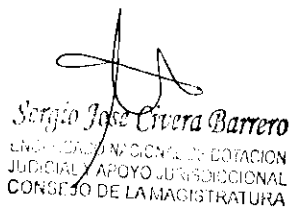 Sergio José Civera Barrero
NACIONAL DOTACION
JUDICIAL Y APOYO JURISDICCIONAL
CONSEJO DE LA MAGISTRATURA